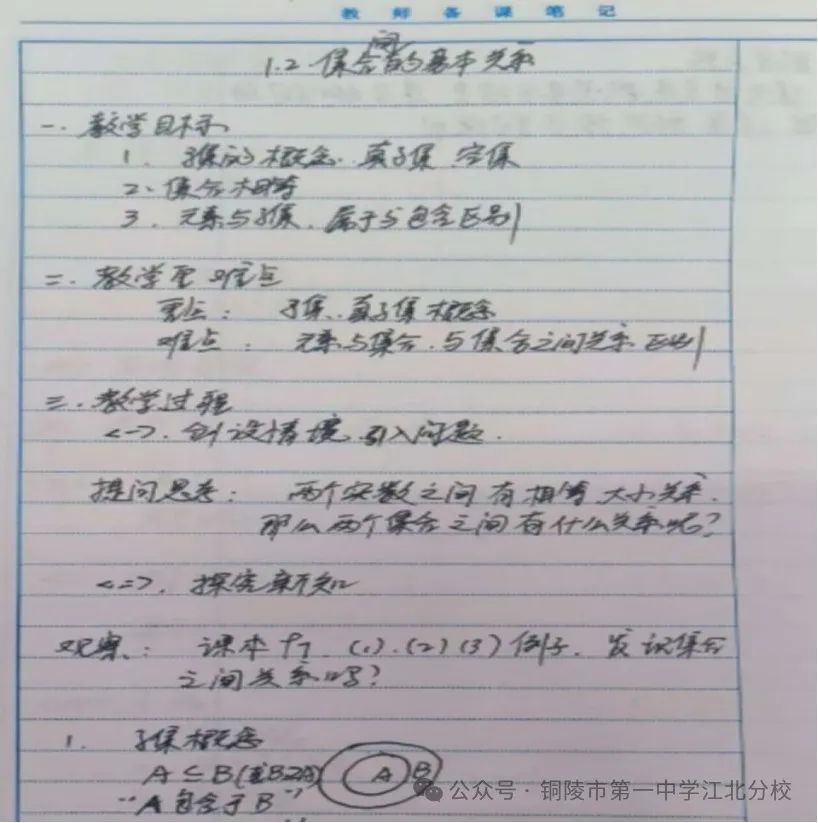 教师备课笔记
1.2 集合间的基本关系
一. 教学目标
1. 子集的概念. 真子集 空集
2. 集合相等
3. 元素与子集. 属于与包含区别
二. 教学重难点
重点: 子集. 真子集概念
难点: 元素与集合. 与集合之间关系区别
三. 教学过程
<一>. 创设情境, 引入问题.
提问思考: 两个实数之间有相等 大小关系.
那么两个集合之间有什么关系呢?
<二>. 探究新知
观察: 课本 P7 (1). (2) (3) 例子. 发现集合
之间关系吗?
1. 子集概念
A⊆B(或B⊇A) A B
"A包含于B"
公众号·铜陵市第一中学江北分校